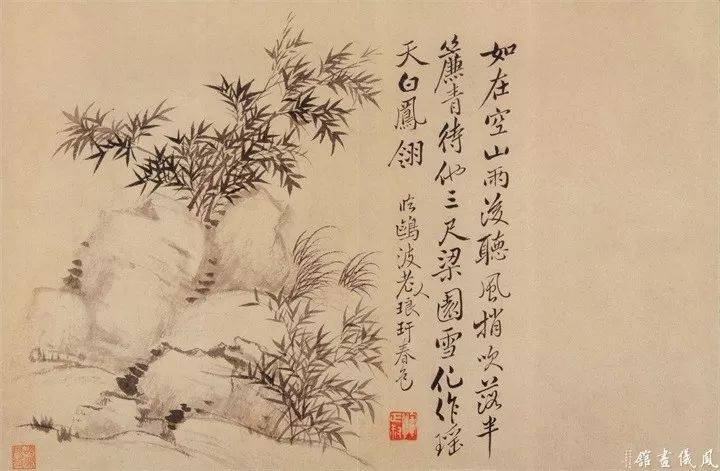 如在空山雨後聽風梢吹落半
簾青待他三尺梁園雪化作瑤
天白鳳翎
臨鷗波老人琅玕春色
風儀畫館